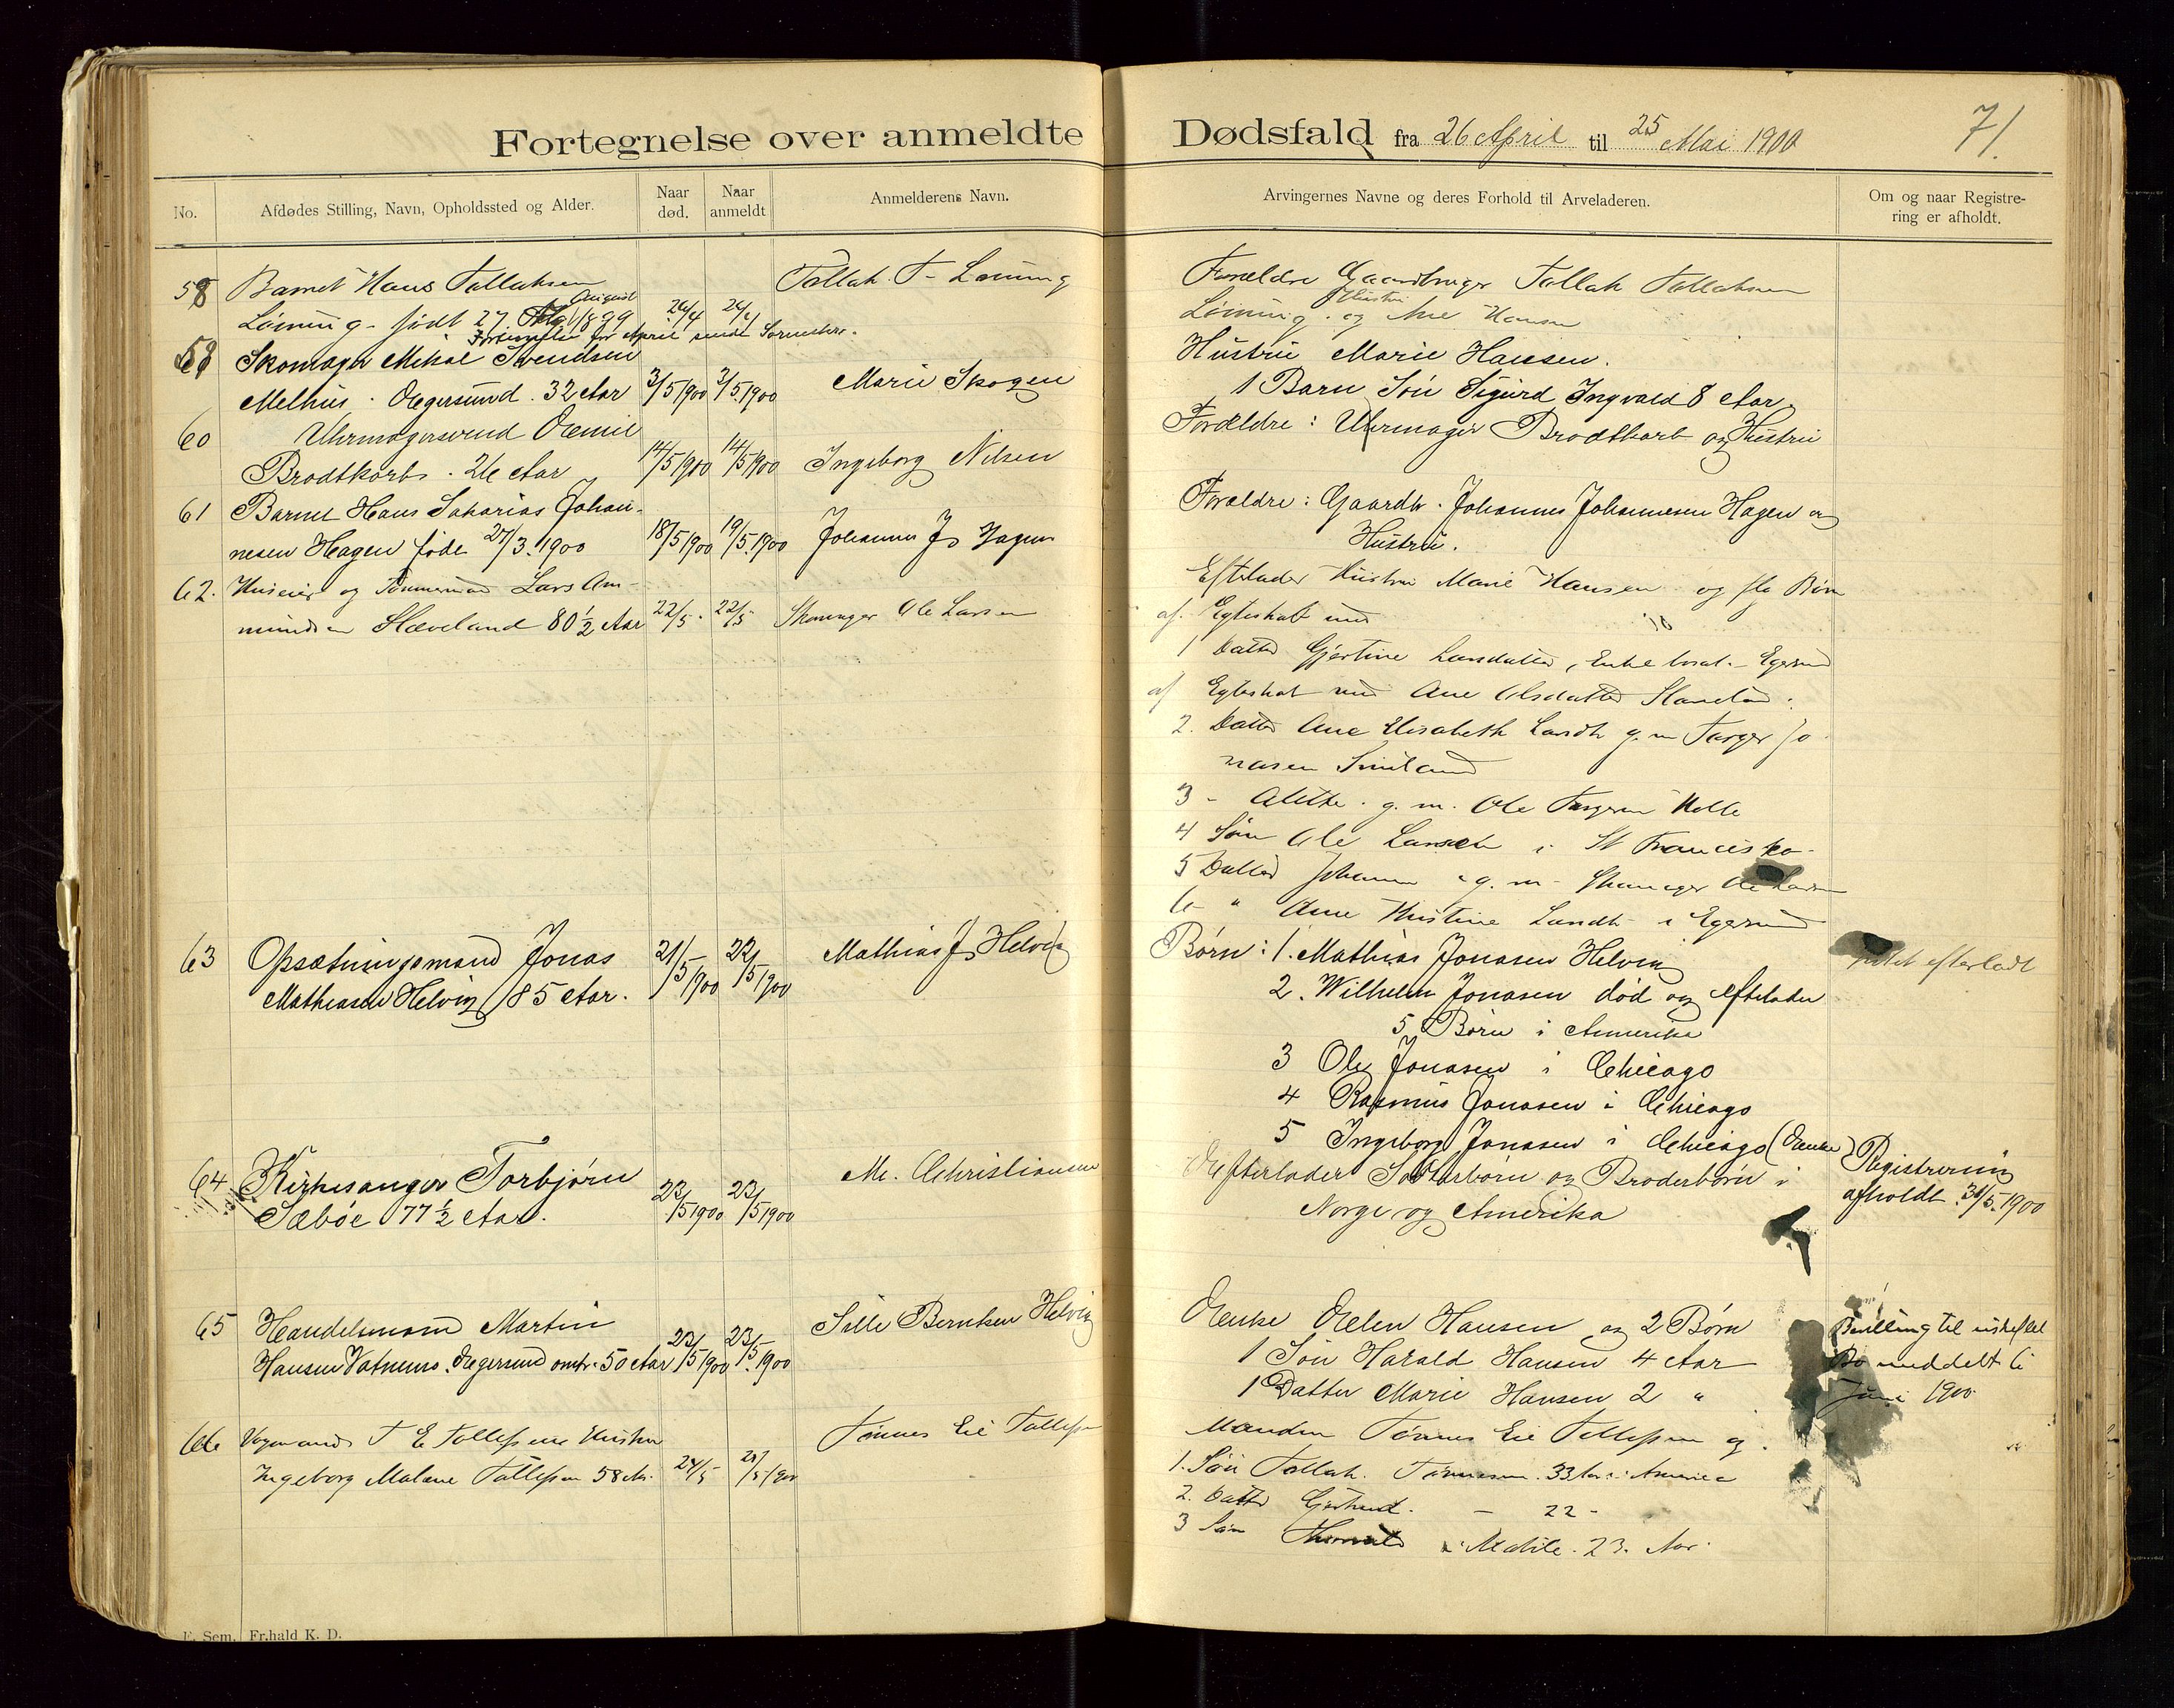 Fortegnelse over anmeldte Dødsfald fra 26 April til 25 Mai 1900
71.
No.
Afdødes Stilling, Navn, Opholdssted og Alder.
Naar død.
Naar anmeldt
Anmelderens Navn.
Arvingernes Navne og deres Forhold til Arveladeren.
Om og naar Registre-
ring er afholdt.
58 Barnet Hans Tollaksen
Løining - født 27 August 1899 26/4 26/4
Tollak T. Løining
Forældre Gaardbruger Tollak Tollaksen
Løining og Hustru Ane Hansen
Fortegnelse for April sendt
59 Skomager Mikal Svendsen
Melhus . Egersund . 32 Aar 3/5 1900 3/5.1900
Marie Skogen
Hustru Marie Hansen.
1 Barn Søn Sigurd Ingvald 8 Aar.
60 Uhrmagersvend Emil
Brodtkorb . 26 Aar 14/5 1900 14/5 1900
Ingeborg Nilsen
Forældre : Uhrmager Brodtkorb og Hustru
61 Barnet Hans Sakarias Johan-
nesen Hagen føde 27/3.1900 18/5 1900 19/5.1900
Johannes Js Hagen
Forældre : Gaardbr. Johannes Johannesen Hagen og
Hustru.
62. Huseier og Tømmermand Lars Am-
mundsen Slæveland 80 ½ Aar 22/5. 22/5
Skomager Ole Larsen
Efterlader Hustru Marie Hansen og flg Børn
af Egteskab med
1 Datter Gjertine Larsdatter, Enke bosat i Egersund
af Egteskab med Ane Olsdatter Slæveland :
2. Datter Ane Elisabeth Larsdtr g. m Targer Jo-
nasen Smiland
3 - Alette . g. m. Ole Torgersen Holle
4 Søn Ole Larsen i St Francisko -
5 Datter Johanne g. m. Skomager Ole Larsen
6 - " Ane Kristine Larsdtr i Egersund
63 Opsætningsmand Jonas
Mathiasen Helvig 85 Aar. 21/5 1900 22/5 1900
Mathias Js Helvig
Børn : 1. Mathias Jonasen Helvig
2. Wilhelm Jonasen død og efterlader
5 Børn i Amerika
3 Ole Jonasen i Chicago
4 Rasmus Jonasen i Chicago
5 Ingeborg Jonasen i Chicago (Enke)
Intet efterladt
64 Kirkesanger Torbjørn
Sæbøe 77 ½ Aar. 23/5 1900 23/5 1900
M. Christiansen
Efterlader Søsterbørn og Broderbørn i
Norge og Amerika
Registrering
afholdt 31/5.1900
65 Handelsmand Martin
Hansen Vatnemo. Egersund omtr. 50 Aar 23/5 1900 23/5.1900
Sille Berntsen Helvig
Enke Elen Hansen og 2 Børn
1 Søn Harald Hansen 4 Aar
1 Datter Marie Hansen 2 "
Bevilling til uskiftet
Bo meddelt 6
Juni 1900
66 Vognmand T E Tollefsens Hustru
Ingeborg Malene Tollefsen 58 Aar. 24/5 25/5 1900
Tønnes Eie Tollefsen
Manden Tønnes Eie Tollefsen og
1. Søn Tollak Tønnesen . 33 Aar i America
2. Datter Gjertrud. - 22 -
3 Søn Thorvald i Mobile . 23. Aar.
E. Sem, Fr.hald K. D.